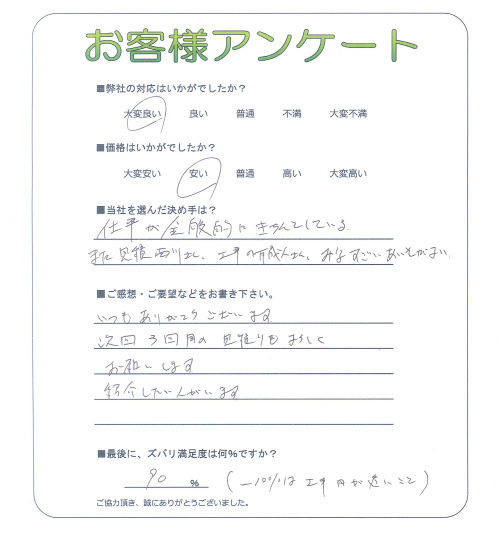 お客様アンケート
■弊社の対応はいかがでしたか？
大変良い 良い 普通 不満 大変不満
■価格はいかがでしたか？
大変安い 安い 普通 高い 大変高い
■当社を選んだ決め手は？
仕事が全般的にきちんとしている。
また見積 西川さん、工事の さん、みなすごいあいそがよい
■ご感想・ご要望などをお書き下さい。
いつもありがとうございます
次回3回目の見積りもよろしく
お願いします
紹介したい人がいます
■最後に、ズバリ満足度は何％ですか？
90 % (−10%は工事 が遅いこと)
ご協力頂き、誠にありがとうございました。